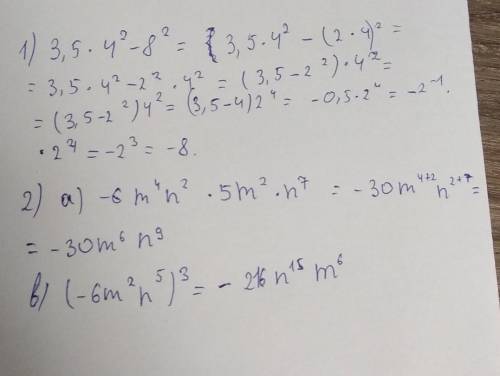 1) 3,5 · 4² - 8² = 3,5 · 4² - (2 · 4)² =
= 3,5 · 4² - 2² · 4² = (3,5 - 2²) · 4² =
= (3,5 - 2²) 4² = (3,5 - 4) 2⁴ = -0,5 · 2⁴ = -2⁻¹ ·
· 2⁴ = -2³ = -8.
2) а) -6 m⁴n² · 5m² · n⁷ = -30m⁴⁺² n²⁺⁷ =
= -30m⁶ n⁹
в) (-6m² n⁵)³ = - 216 n¹⁵ m⁶